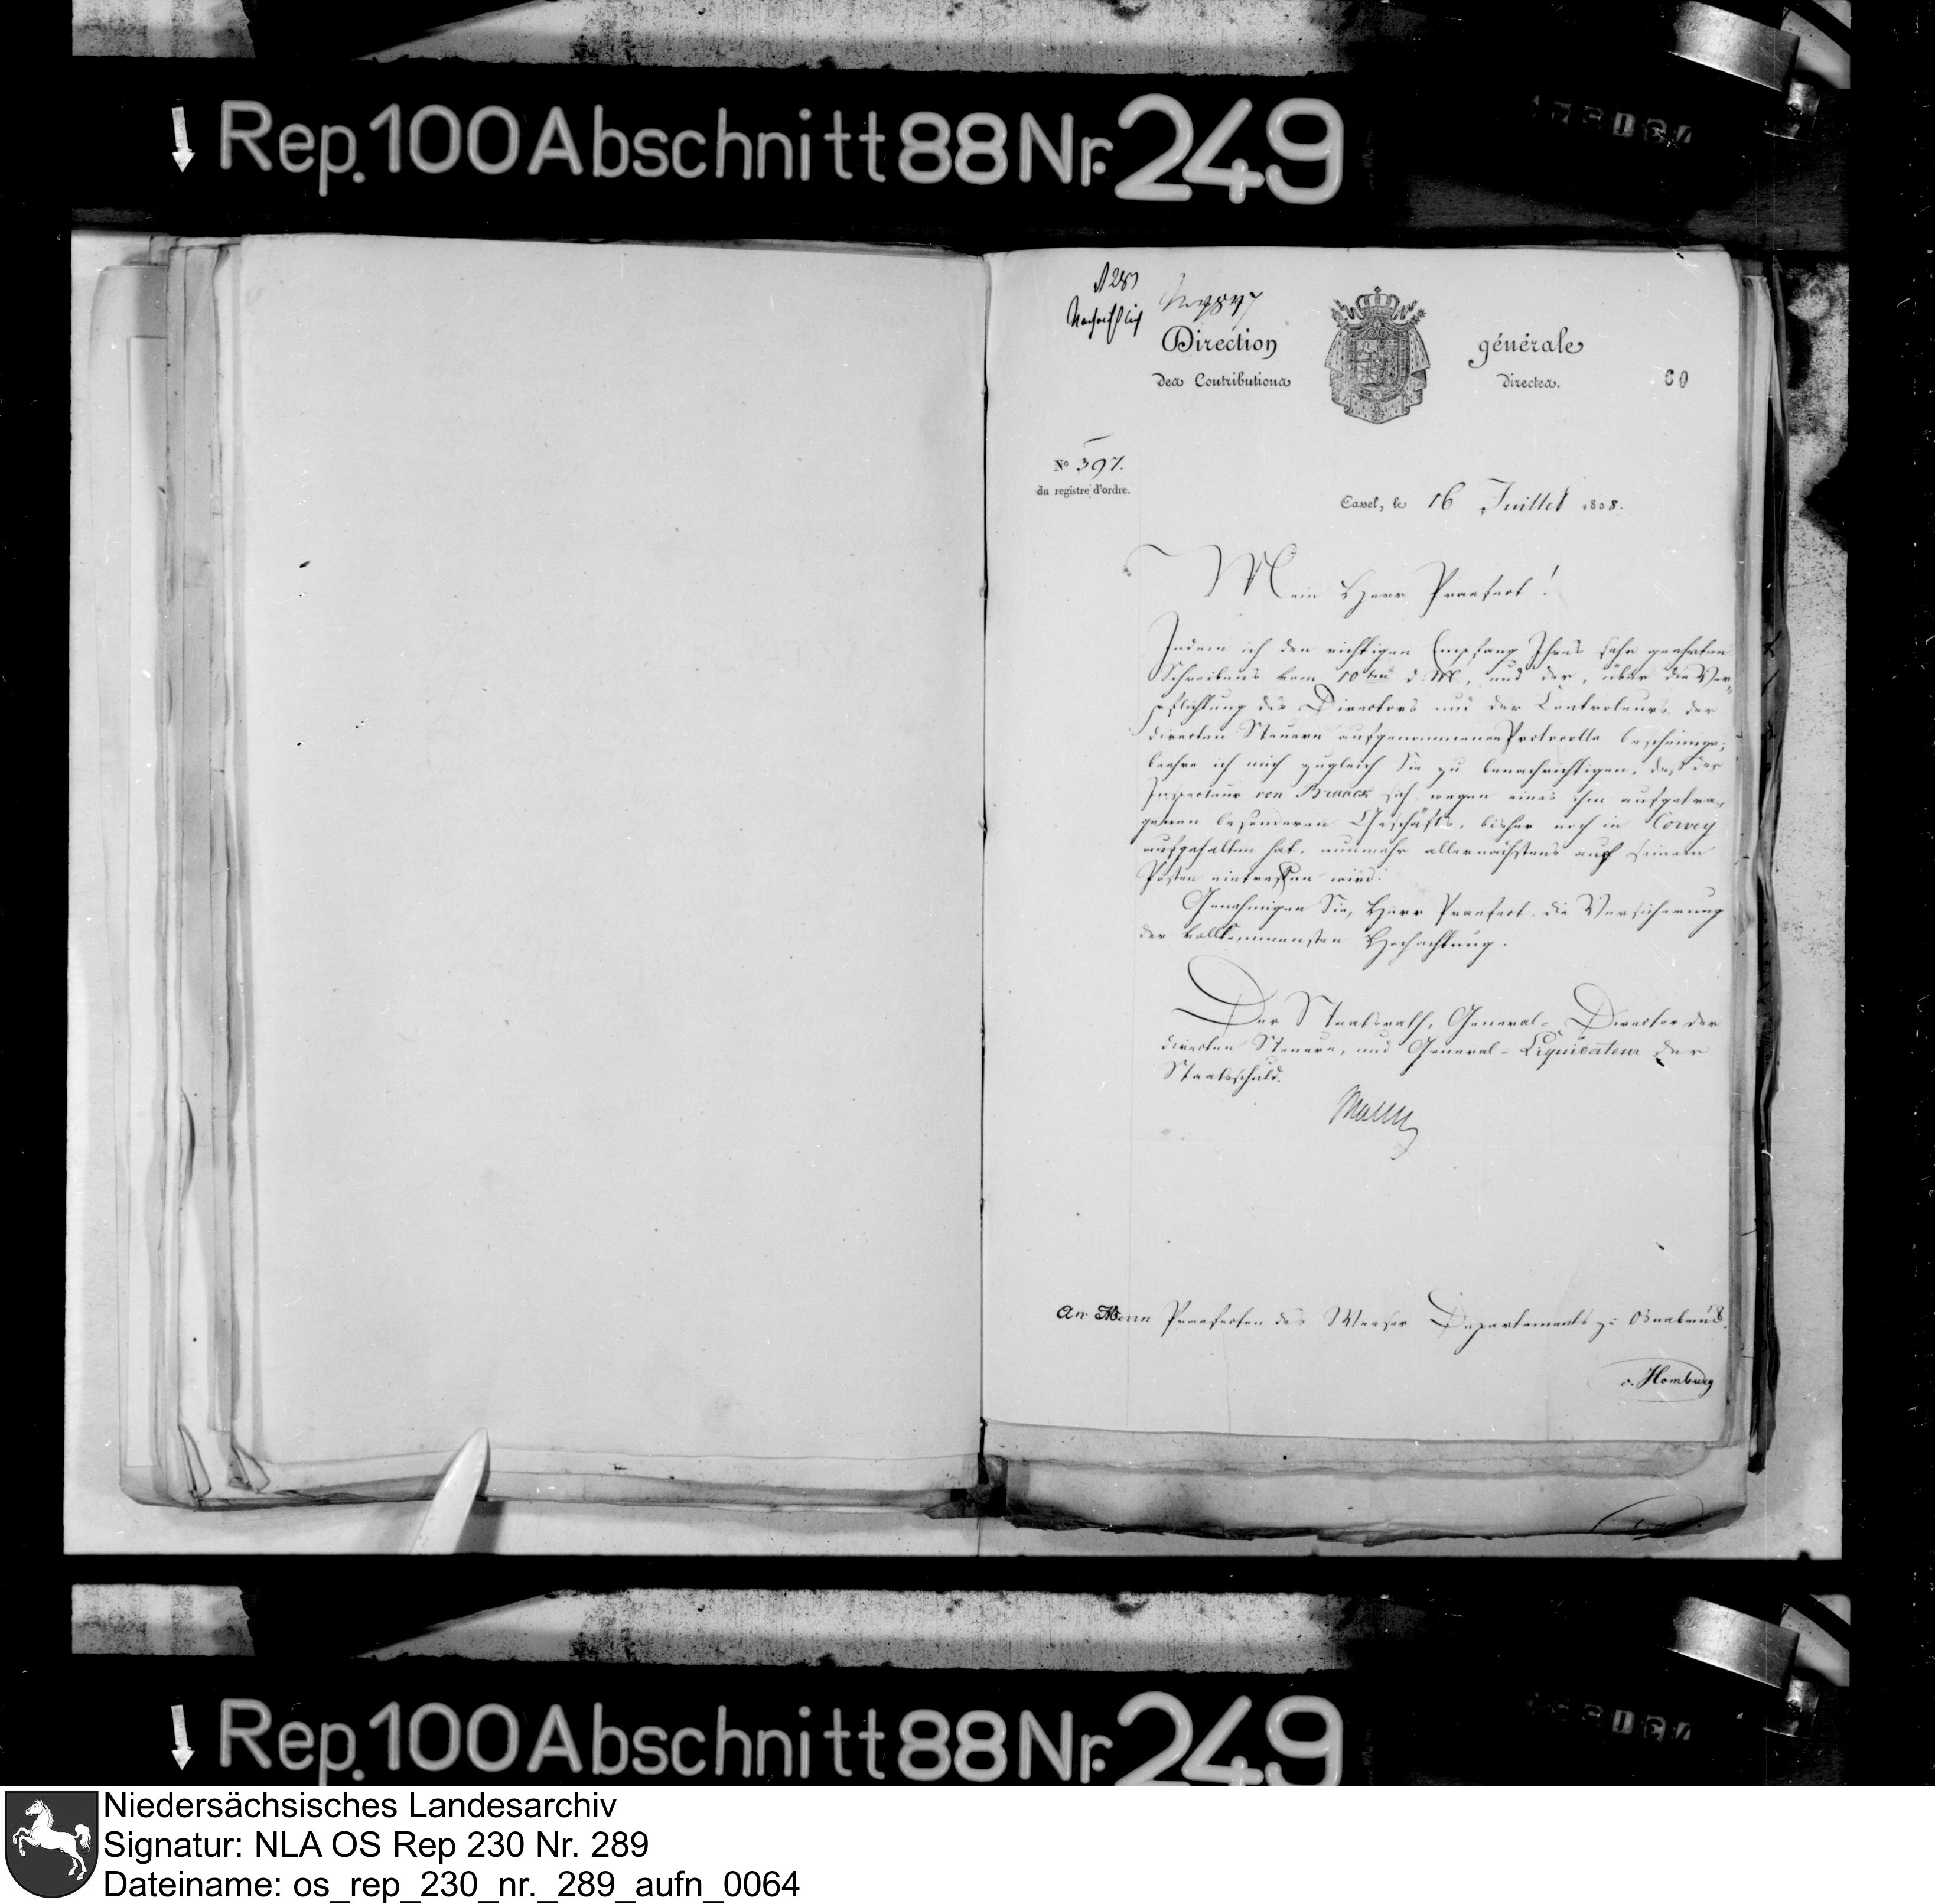 Rep. 100 Abschnitt 88 Nr. 249
Direction générale
des Contributions directes.
60
No 397.
du registre d'ordre.
Cassel, le 16 Juillet 1808.
Mein Herr Praefect!
Indem ich den richtigen Empfang Ihres sehr geehrten
Schreibens vom 10ten d. M., und der, über die Ver-
pflichtung des Directors und der Controleurs der
directen Steuern aufgenommenen Protocolle bescheinige,
beehre ich mich zugleich Sie zu benachrichtigen, daß der
Inspecteur von sich wegen eines ihm aufgetra-
genen besonderen Geschäfts, bisher noch in Corvey
aufgehalten hat, nunmehr allernächstens auf seinem
Posten eintreffen wird.
Genehmigen Sie, Herr Praefect die Versicherung
der vollkommensten Hochachtung.
Der Staatsrath, General-Director der
directen Steuern, und General-Liquidateur der
Staatsschuld.
An Herrn Praefecten des Weeser Departements zu Osnabrück.
v. Homburg
Rep. 100 Abschnitt 88 Nr. 249
Niedersächsisches Landesarchiv
Signatur: NLA OS Rep 230 Nr. 289
Dateiname: os_rep_230_nr._289_aufn_0064